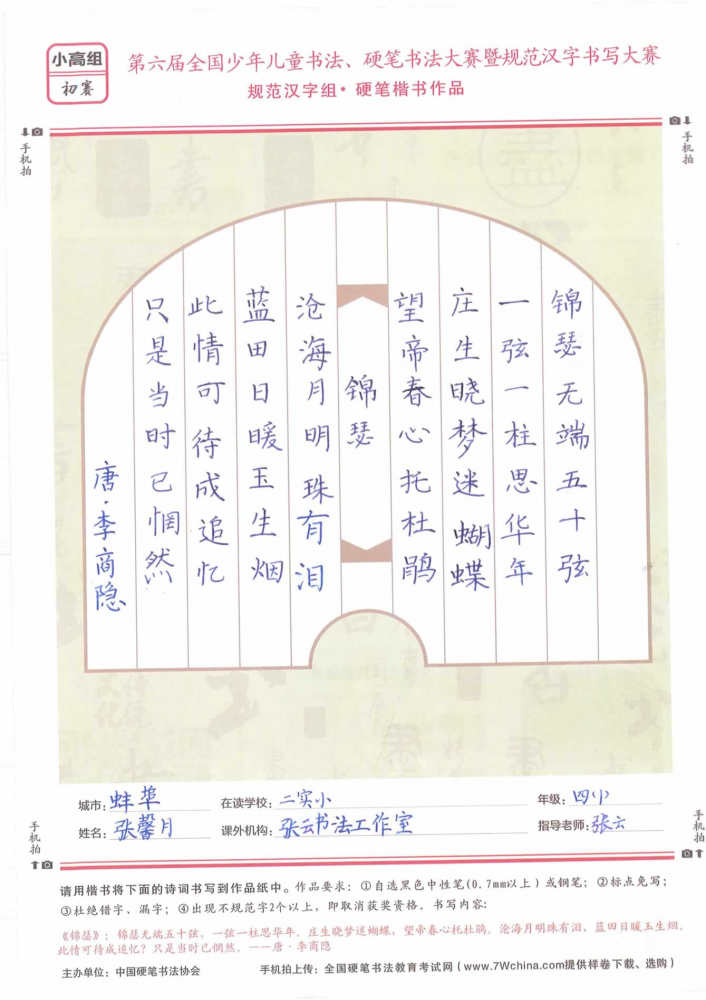 小高组
初赛
第六届全国少年儿童书法、硬笔书法大赛暨规范汉字书写大赛
规范汉字组·硬笔楷书作品
手机拍
手机拍
锦瑟无端五十弦
一弦一柱思华年
庄生晓梦迷蝴蝶
望帝春心托杜鹃
锦瑟
沧海月明珠有泪
蓝田日暖玉生烟
此情可待成追忆
只是当时已惘然
唐·李商隐
城市：蚌埠 在读学校：二实小 年级：四小
姓名：张馨月 课外机构：张云书法工作室 指导老师：张云
手机拍
手机拍
请用楷书将下面的诗词书写到作品纸中。作品要求：①自选黑色中性笔(0.7mm以上）或钢笔；②标点免写；
③杜绝错字、漏字；④出现不规范字2个以上，即取消获奖资格。书写内容：
《锦瑟》：锦瑟无端五十弦，一弦一柱思华年。庄生晓梦迷蝴蝶，望帝春心托杜鹃。沧海月明珠有泪，蓝田日暖玉生烟。
此情可待成追忆？只是当时已惘然。——唐·李商隐
主办单位：中国硬笔书法协会 手机拍上传：全国硬笔书法教育考试网（www.7Wchina.com提供样卷下载、选购）